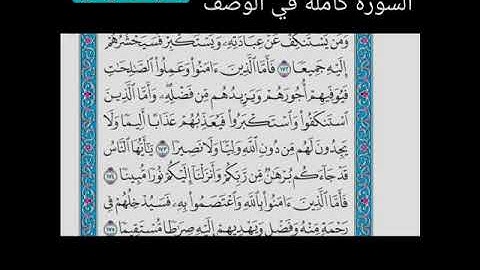 السورة كاملة في الوصف
وَمَن يَسْتَنكِفْ عَنْ عِبَادَتِهِۦ وَيَسْتَكْبِرْ فَسَيَحْشُرُهُمْ
إِلَيْهِ جَمِيعًا ١٧٢ فَأَمَّا ٱلَّذِينَ ءَامَنُوا۟ وَعَمِلُوا۟ ٱلصَّٰلِحَٰتِ
فَيُوَفِّيهِمْ أُجُورَهُمْ وَيَزِيدُهُم مِّن فَضْلِهِۦ وَأَمَّا ٱلَّذِينَ
ٱسْتَنكَفُوا۟ وَٱسْتَكْبَرُوا۟ فَيُعَذِّبُهُمْ عَذَابًا أَلِيمًا وَلَا
يَجِدُونَ لَهُم مِّن دُونِ ٱللَّهِ وَلِيًّا وَلَا نَصِيرًا ١٧٣ يَٰٓأَيُّهَا ٱلنَّاسُ
قَدْ جَآءَكُم بُرْهَٰنٌ مِّن رَّبِّكُمْ وَأَنزَلْنَآ إِلَيْكُمْ نُورًا مُّبِينًا ١٧٤
فَأَمَّا ٱلَّذِينَ ءَامَنُوا۟ بِٱللَّهِ وَٱعْتَصَمُوا۟ بِهِۦ فَسَيُدْخِلُهُمْ فِى
رَحْمَةٍ مِّنْهُ وَفَضْلٍ وَيَهْدِيهِمْ إِلَيْهِ صِرَٰطًا مُّسْتَقِيمًا ١٧٥